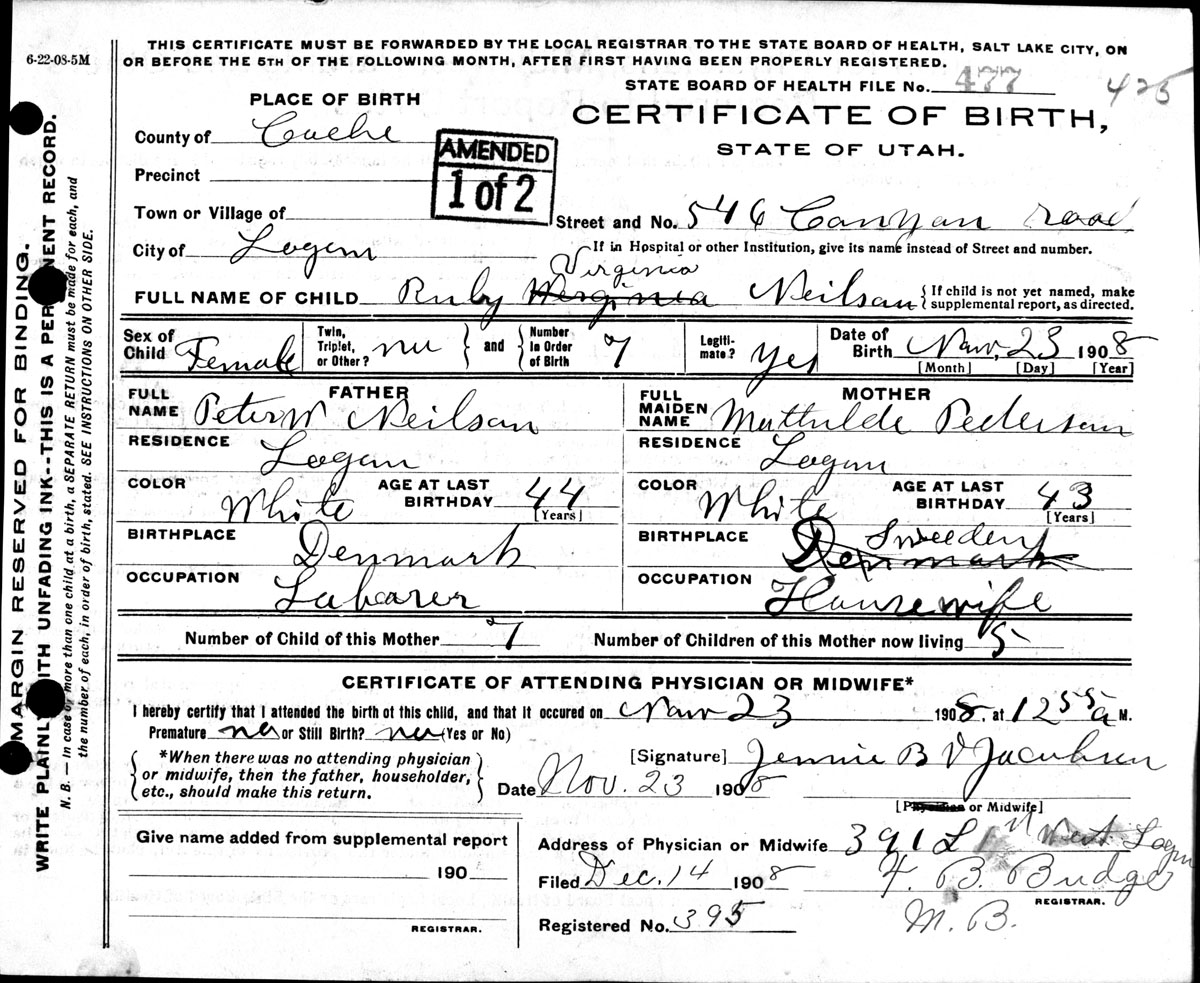 THIS CERTIFICATE MUST BE FORWARDED BY THE LOCAL REGISTRAR TO THE STATE BOARD OF HEALTH, SALT LAKE CITY, ON
6-22-08-5M
OR BEFORE THE 5TH OF THE FOLLOWING MONTH, AFTER FIRST HAVING BEEN PROPERLY REGISTERED.
STATE BOARD OF HEALTH FILE No. 477
425
PLACE OF BIRTH
CERTIFICATE OF BIRTH,
STATE OF UTAH.
County of Cache
AMENDED
1 of 2
Precinct
Town or Village of
Street and No. 546 Canyon road
City of Logan
If in Hospital or other Institution, give its name instead of Street and number.
Virginia
FULL NAME OF CHILD Ruby Werginia Neilsan
{If child is not yet named, make
supplemental report, as directed.
Sex of Child Female
Twin, Triplet, or Other? no
and
Number in Order of Birth 7
Legiti-mate? Yes
Date of Birth Nov. 23 1908
[Month] [Day] [Year]
FATHER
FULL NAME Peter W Neilsan
RESIDENCE Logan
COLOR White
AGE AT LAST BIRTHDAY 44
[Years]
BIRTHPLACE Denmark
OCCUPATION Labarer
MOTHER
FULL MAIDEN NAME Mathilde Pedersan
RESIDENCE Logan
COLOR White
AGE AT LAST BIRTHDAY 43
[Years]
Sweeden
BIRTHPLACE Denmark
OCCUPATION Housewife
Number of Child of this Mother 7
Number of Children of this Mother now living 5
CERTIFICATE OF ATTENDING PHYSICIAN OR MIDWIFE*
I hereby certify that I attended the birth of this child, and that it occured on Nov 23 1908, at 12 55 a M.
Premature no or Still Birth? no (Yes or No)
*When there was no attending physician
or midwife, then the father, householder,
etc., should make this return.
[Signature] Jennie B V Jacobsen
Date Nov. 23 1908
[Physician or Midwife]
Give name added from supplemental report
190
REGISTRAR.
Address of Physician or Midwife 391 1 West Logan
Filed Dec. 14 1908
F. B. Budge
REGISTRAR.
Registered No. 395
M. B.
MARGIN RESERVED FOR BINDING.
WRITE PLAINLY WITH UNFADING INK--THIS IS A PERMANENT RECORD.
N. B. — In case of more than one child at a birth, a SEPARATE RETURN must be made for each, and
the number of each, in order of birth, stated. SEE INSTRUCTIONS ON OTHER SIDE.